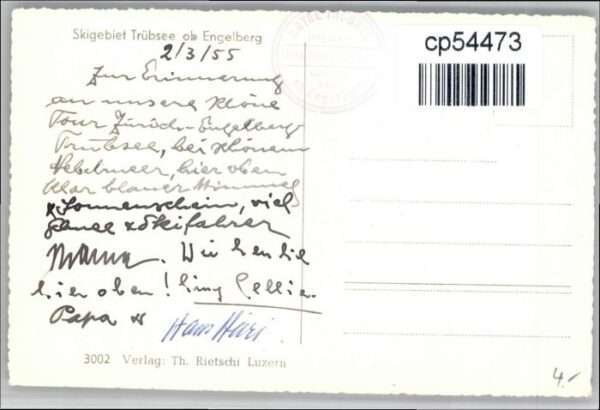 Skigebiet Trübsee ob Engelberg
cp54473
2/3/55
Zur Erinnerung
an unsere schöne
Tour Zürich-Engelberg
Trübsee, bei schönem
Nebelmeer, hier oben
klar blauer Himmel
& Sonnenschein, viel
Schnee & Skifahrer
Mama.
hier oben!
Papa
Hans
3002 Verlag: Th. Rietschi Luzern
4.-